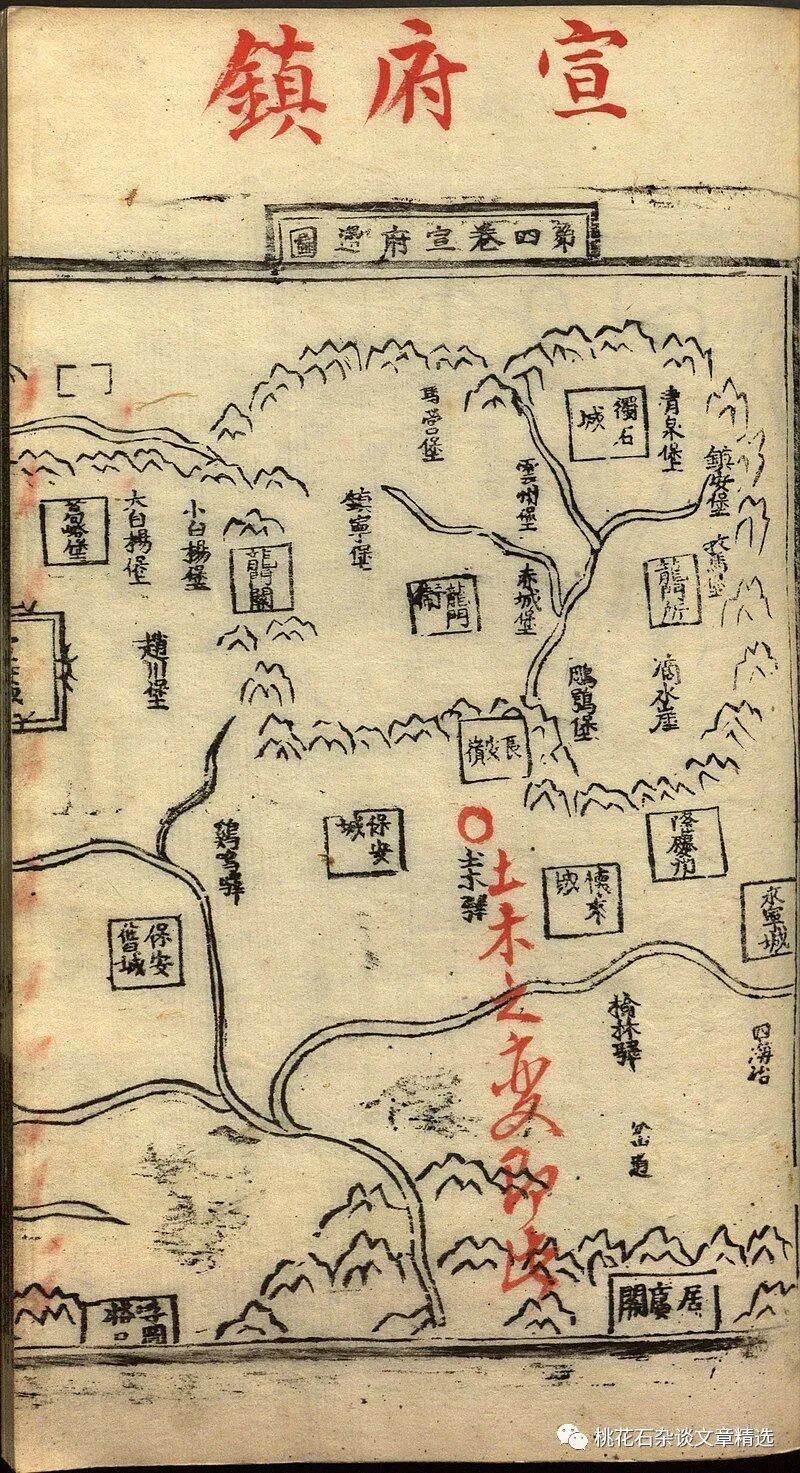 宣府鎮
第四卷宣府邊圖
獨石城
清泉堡
馬營堡
雲州堡
鎮安堡
鎮寧堡
葛峪堡
大白楊堡
小白楊堡
龍門關
龍門衛
赤城堡
龍門所
牧馬堡
趙川堡
鵰鶚堡
滴水崖
長安嶺
保安城
雞鳴驛
土木驛
土木之変即此
懷來城
隆慶州
永寧城
保安舊城
榆林驛
四海冶
岔道
居庸關
浮圖峪口
桃花石杂谈文章精选